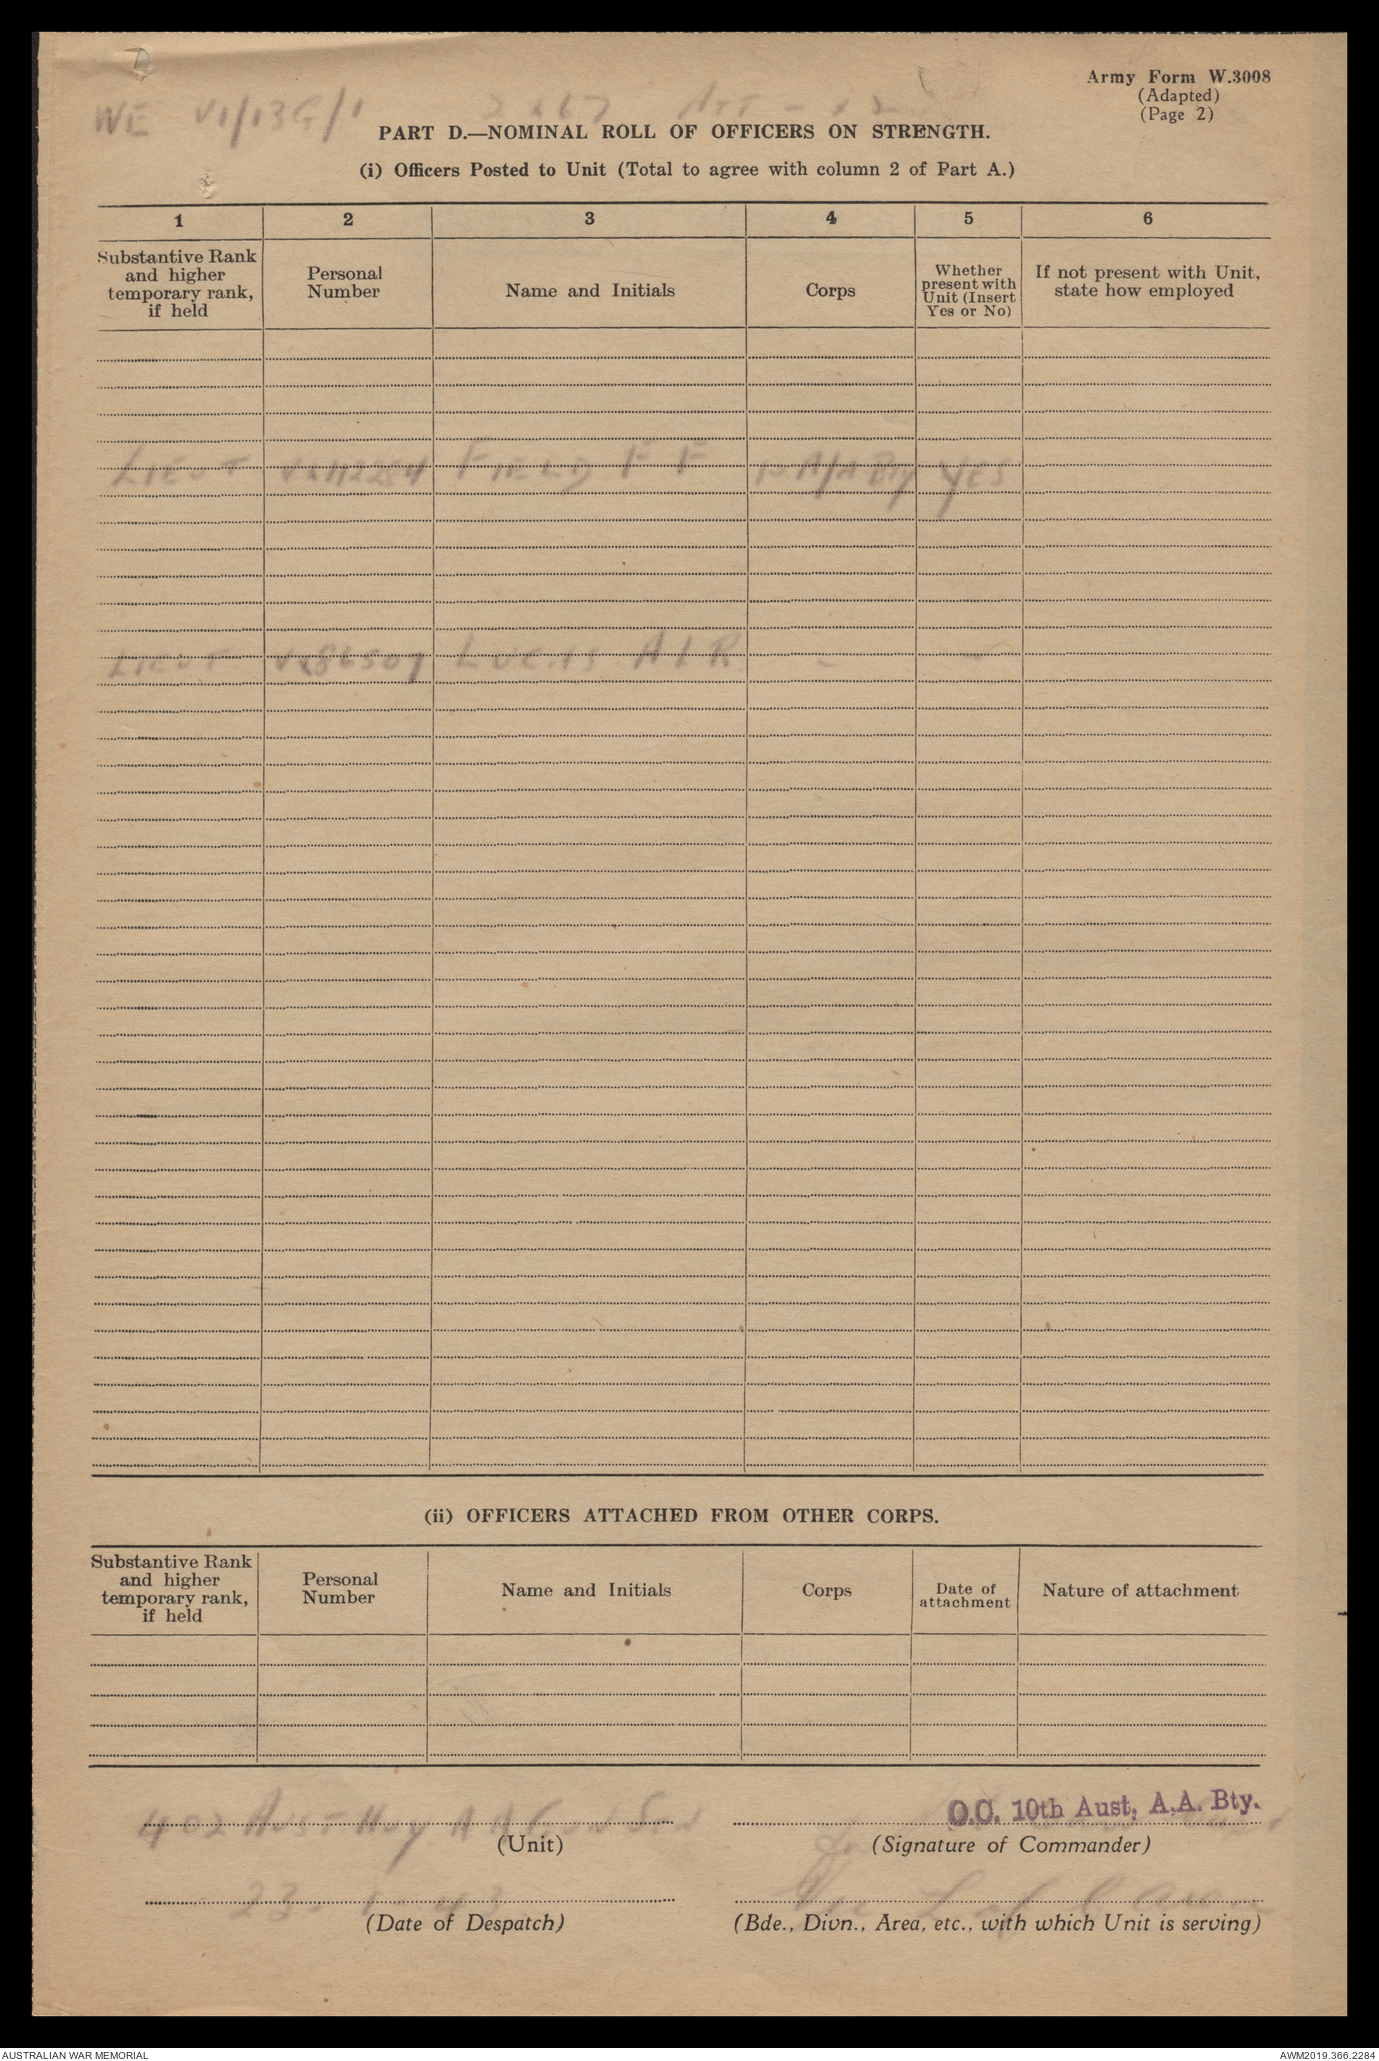 Army Form W.3008
(Adapted)
(Page 2)
WE VI/13G/1
PART D.—NOMINAL ROLL OF OFFICERS ON STRENGTH.
(i) Officers Posted to Unit (Total to agree with column 2 of Part A.)
1 2 3 4 5 6
Substantive Rank and higher temporary rank, if held
Personal Number
Name and Initials
Corps
Whether present with Unit (Insert Yes or No)
If not present with Unit, state how employed
LIEUT FIELD F F A/A Bty YES
LIEUT VX86507 LUCAS A L R
(ii) OFFICERS ATTACHED FROM OTHER CORPS.
Substantive Rank and higher temporary rank, if held
Personal Number
Name and Initials
Corps
Date of attachment
Nature of attachment
402 AUST HVY A A GUN
O.C. 10th Aust, A.A. Bty.
(Unit) (Signature of Commander)
23
(Date of Despatch) (Bde., Divn., Area, etc., with which Unit is serving)
AUSTRALIAN WAR MEMORIAL AWM2019.366.2284